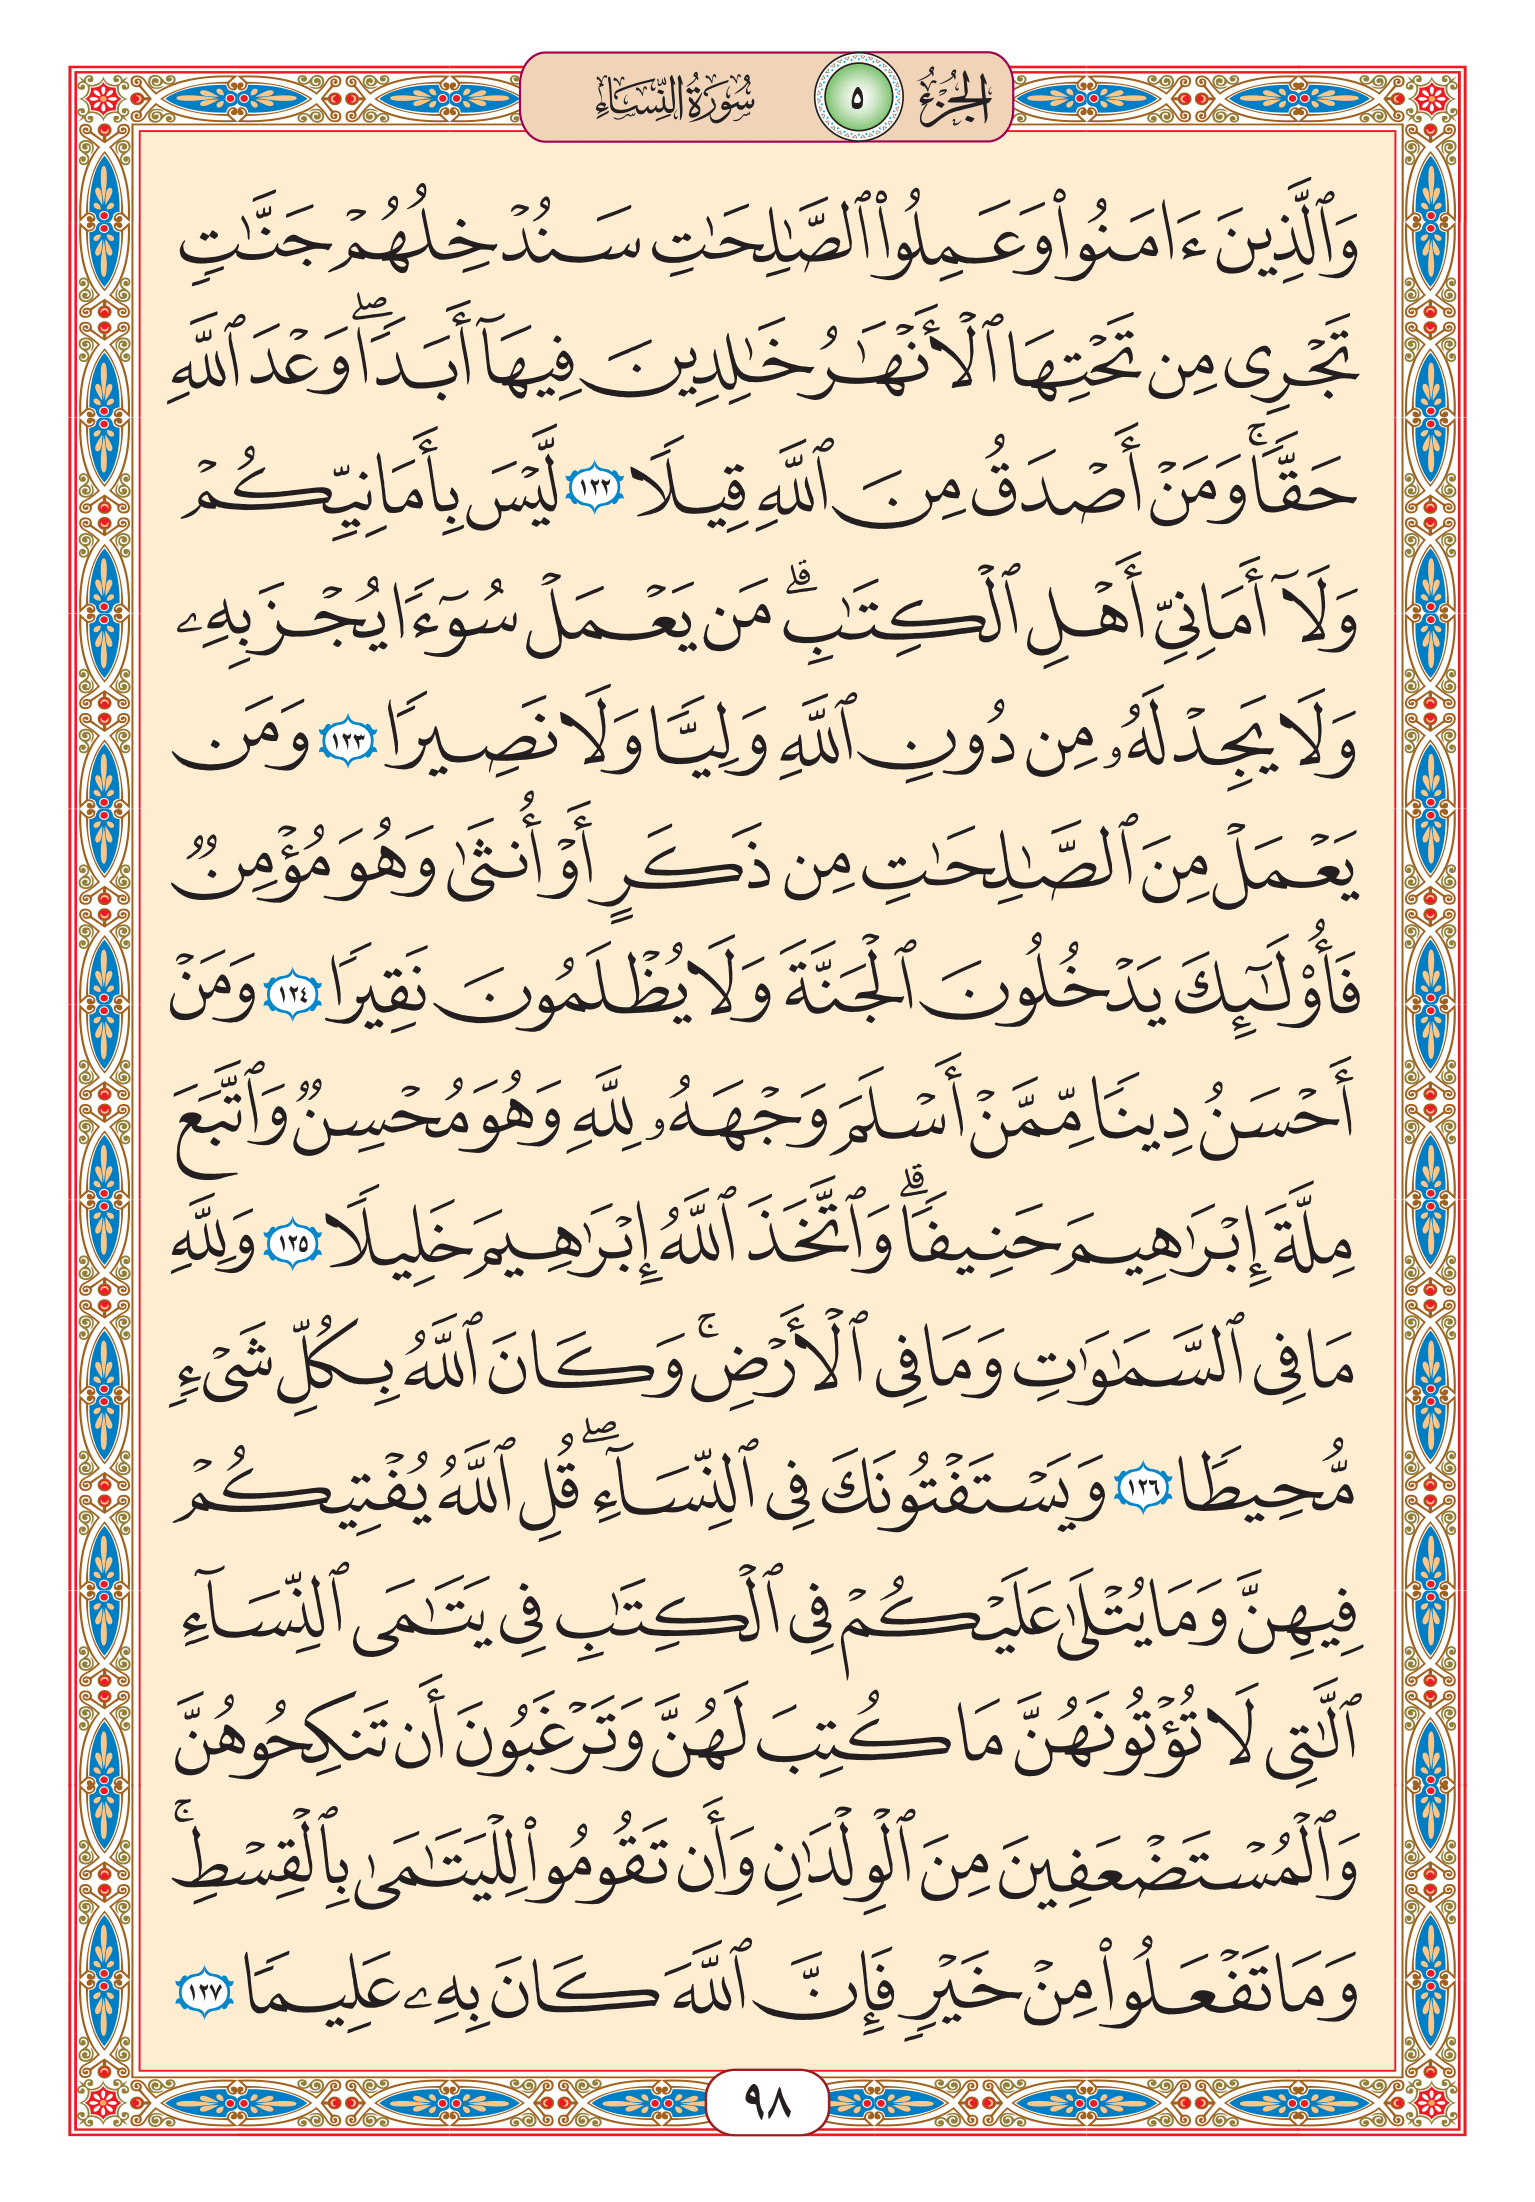 الجزء ٥ سورة النساء
وَٱلَّذِينَ ءَامَنُوا۟ وَعَمِلُوا۟ ٱلصَّـٰلِحَـٰتِ سَنُدْخِلُهُمْ جَنَّـٰتٍ
تَجْرِى مِن تَحْتِهَا ٱلْأَنْهَـٰرُ خَـٰلِدِينَ فِيهَآ أَبَدًا ۖ وَعْدَ ٱللَّهِ
حَقًّا ۚ وَمَنْ أَصْدَقُ مِنَ ٱللَّهِ قِيلًا ١٢٢ لَّيْسَ بِأَمَانِيِّكُمْ
وَلَآ أَمَانِىِّ أَهْلِ ٱلْكِتَـٰبِ ۗ مَن يَعْمَلْ سُوٓءًا يُجْزَ بِهِۦ
وَلَا يَجِدْ لَهُۥ مِن دُونِ ٱللَّهِ وَلِيًّا وَلَا نَصِيرًا ١٢٣ وَمَن
يَعْمَلْ مِنَ ٱلصَّـٰلِحَـٰتِ مِن ذَكَرٍ أَوْ أُنثَىٰ وَهُوَ مُؤْمِنٌ
فَأُو۟لَـٰٓئِكَ يَدْخُلُونَ ٱلْجَنَّةَ وَلَا يُظْلَمُونَ نَقِيرًا ١٢٤ وَمَنْ
أَحْسَنُ دِينًا مِّمَّنْ أَسْلَمَ وَجْهَهُۥ لِلَّهِ وَهُوَ مُحْسِنٌ وَٱتَّبَعَ
مِلَّةَ إِبْرَٰهِيمَ حَنِيفًا ۗ وَٱتَّخَذَ ٱللَّهُ إِبْرَٰهِيمَ خَلِيلًا ١٢٥ وَلِلَّهِ
مَا فِى ٱلسَّمَـٰوَٰتِ وَمَا فِى ٱلْأَرْضِ ۚ وَكَانَ ٱللَّهُ بِكُلِّ شَىْءٍ
مُّحِيطًا ١٢٦ وَيَسْتَفْتُونَكَ فِى ٱلنِّسَآءِ ۖ قُلِ ٱللَّهُ يُفْتِيكُمْ
فِيهِنَّ وَمَا يُتْلَىٰ عَلَيْكُمْ فِى ٱلْكِتَـٰبِ فِى يَتَـٰمَى ٱلنِّسَآءِ
ٱلَّـٰتِى لَا تُؤْتُونَهُنَّ مَا كُتِبَ لَهُنَّ وَتَرْغَبُونَ أَن تَنكِحُوهُنَّ
وَٱلْمُسْتَضْعَفِينَ مِنَ ٱلْوِلْدَٰنِ وَأَن تَقُومُوا۟ لِلْيَتَـٰمَىٰ بِٱلْقِسْطِ ۚ
وَمَا تَفْعَلُوا۟ مِنْ خَيْرٍ فَإِنَّ ٱللَّهَ كَانَ بِهِۦ عَلِيمًا ١٢٧
٩٨